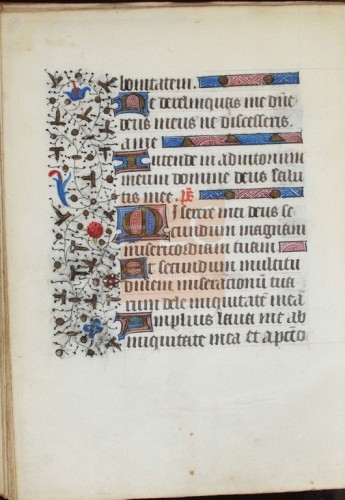 bonitatem.
Ne derelinquas me dñe
deus meus ne discesseris
a me
Intende in adiutorium
meum domine deus salu
tis mee. ps̄
Miserere mei deus se
cundum magnam
misericordiam tuam
Et secundum multitu
dinem miserationū tua
rum dele iniquitatē meā
Amplius laua me ab
iniquitate mea et a pctō